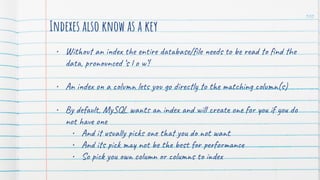 Indexes also know as a key
• Without an index the entire database/file needs to be read to find the
data, pronounced 's l o w'!
• An index on a column lets you go directly to the matching column(s)
• By default, MySQL wants an index and will create one for you if you do
not have one
• And it usually picks one that you do not want
• And its pick may not be the best for performance
• So pick you own column or columns to index